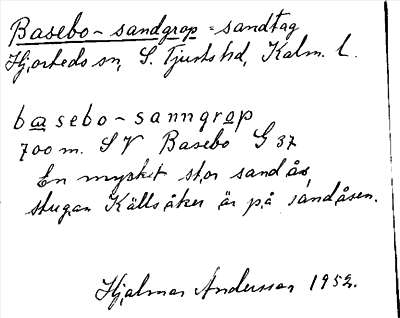 Basebo-sandgrop = sandtag
Hjorteds sn, S. Tjusts hd, Kalm. l.
basebo-sanngrop
700 m. S V Basebo G 37
En mycket stor sandås,
stugan Källsåker är på sandåsen.
Hjalmar Andersson 1952.